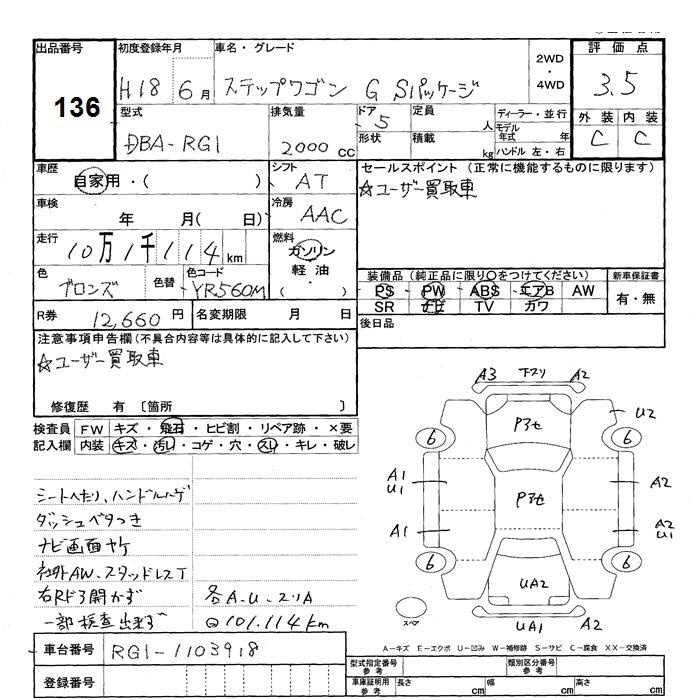 出品番号
136
初度登録年月
H18 6月
車名・グレード
ステップワゴン G Sパッケージ
2WD・4WD
評価点
3.5
外装 内装
C C
型式
DBA-RG1
排気量
2000 cc
ドア 5
形状
定員 人
積載 kg
ディーラー・並行
モデル年式 年
ハンドル 左・右
車歴
自家用・( )
シフト
AT
セールスポイント (正常に機能するものに限ります)
☆ユーザー買取車
車検
年 月( 日)
冷房
AAC
走行
10万1千114 km
燃料
ガソリン
軽油・
( )
色
ブロンズ
色替
色コード
YR560M
装備品(純正品に限り○をつけてください)
PS PW ABS エアB AW
SR ナビ TV カワ
新車保証書
有・無
R券 12,660 円
名変期限 月 日
後日品
注意事項申告欄(不具合内容等は具体的に記入して下さい)
☆ユーザー買取車
修復歴 有 〔箇所 〕
検査員記入欄
FW キズ・飛石・ヒビ割・リペア跡・×要
内装 キズ・汚レ・コゲ・穴・スレ・キレ・破レ
シートヘたり、ハンドルハゲ
ダッシュベタつき
ナビ画面ヤケ
社外AW、スタッドレスT
右Rドア開かず 各A・U・スリA
一部検査出来ず ◎101,114km
A3 下スリ A2
Pアセ
U2
6 6
A1
U1
Pアセ
A2
A1
A2
U1
6 6
UA2
スペア
UA1 A2
A-キズ E-エクボ U-凹み W-補修跡 S-サビ C-腐食 XX-交換済
車台番号
RG1-1103918
登録番号
型式指定番号 参考
類別区分番号 参考
車庫証明用 参考
長さ cm 幅 cm 高さ cm